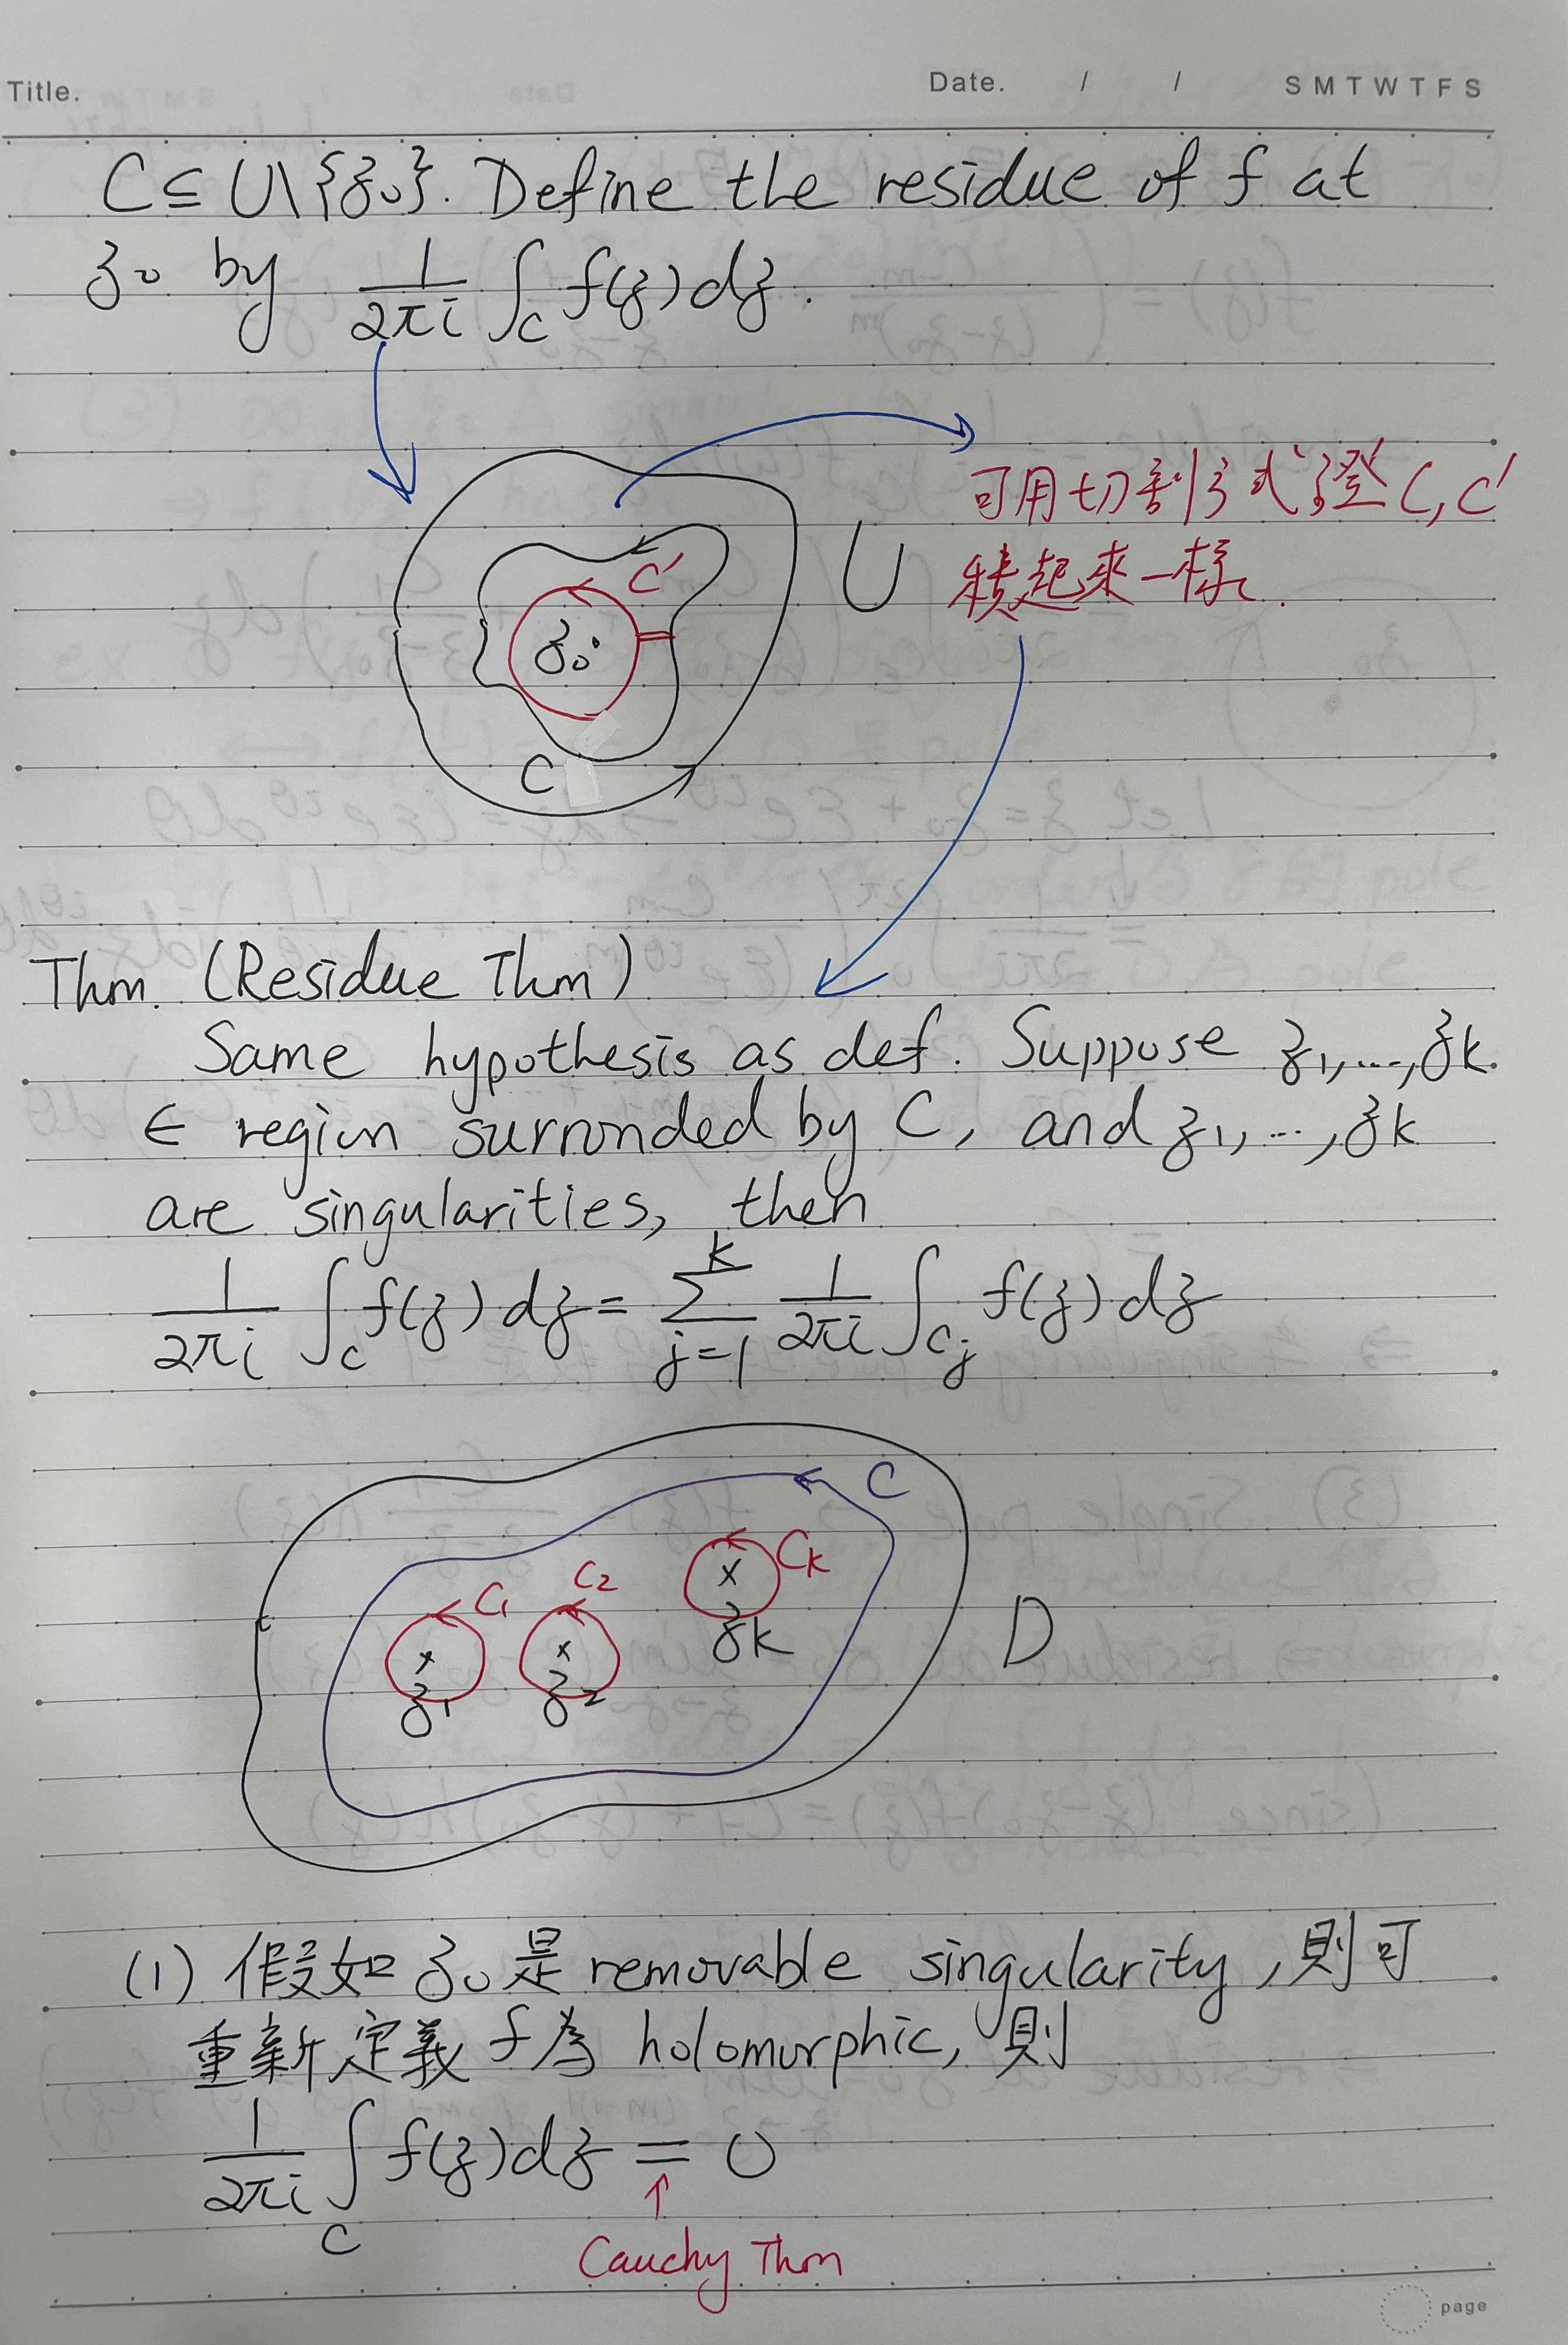 Title.
Date. / / S M T W T F S
C ⊆ U\{z₀}. Define the residue of f at
z₀ by 1/(2πi) ∫_C f(z)dz.
可用切割方式證 C, C'
積起來一樣.
U
C'
z₀
C
Thm. (Residue Thm)
Same hypothesis as def. Suppose z₁,...,zk
∈ region surrounded by C, and z₁,...,zk
are singularities, then
1/(2πi) ∫_C f(z)dz = Σ_{j=1}^{k} 1/(2πi) ∫_{Cj} f(z)dz
C
C₁ C₂ Ck
z₁ z₂ zk
D
(1) 假如 z₀ 是 removable singularity, 則可
重新定義 f 為 holomorphic, 則
1/(2πi) ∫_C f(z)dz = 0
↑
Cauchy Thm
page